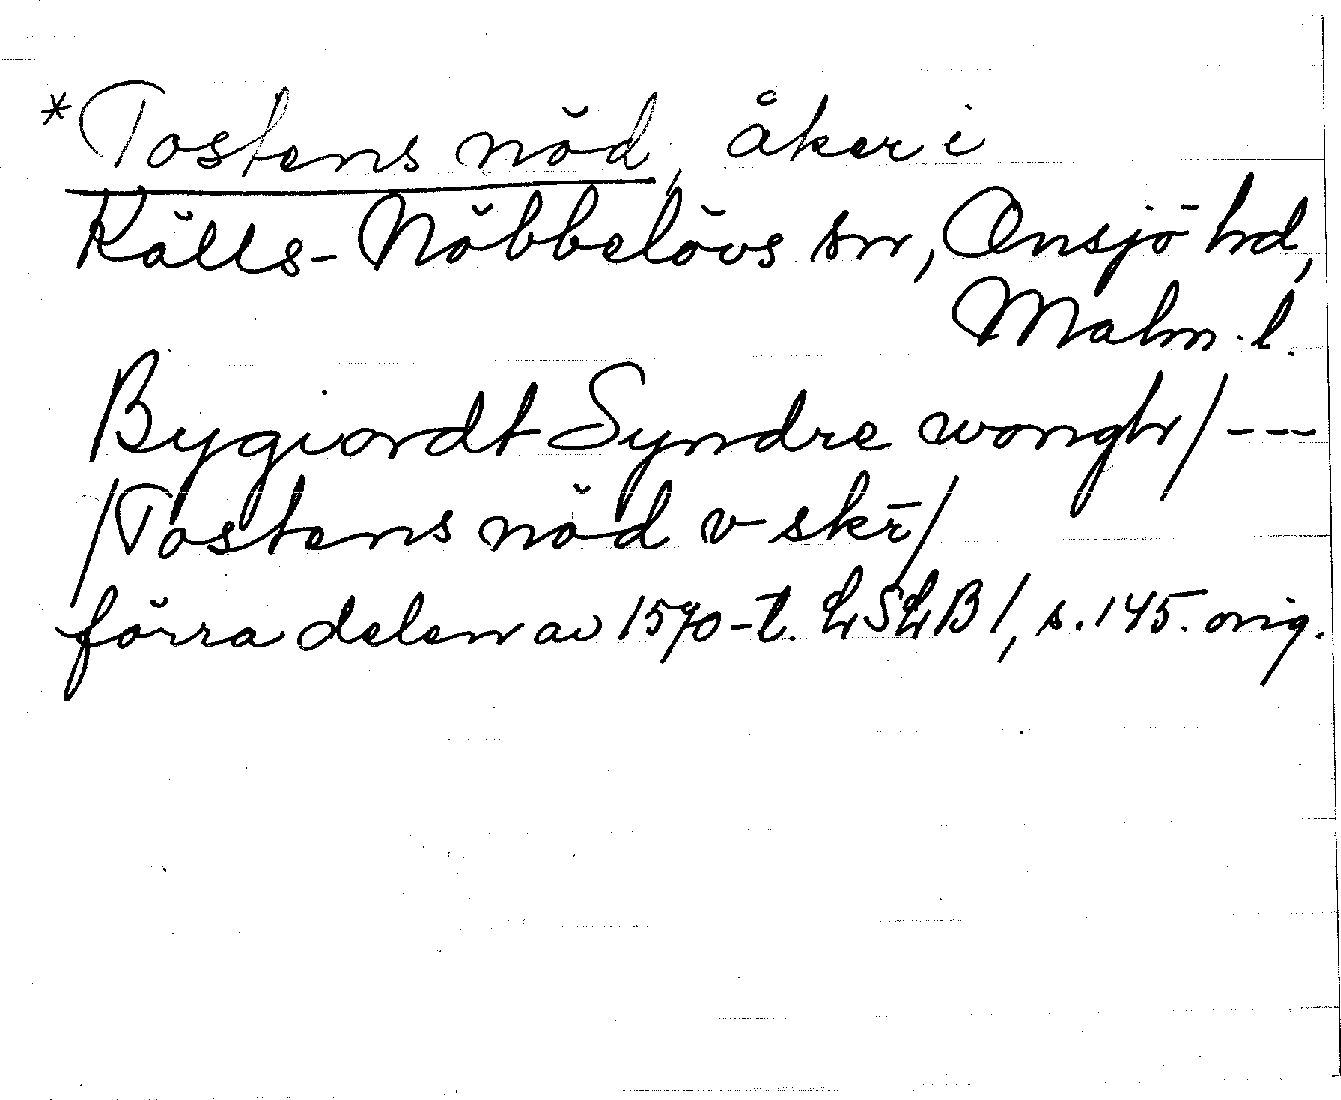 *Tostens nöd, åker i
Källs-Nöbbelövs sn, Onsjö hd,
Malm. l.
Bygiordt Syndre wongh/ ---
/Tostens nöd v skr̄/
förra delen av 1570-t. LSLB 1, s. 145. orig.